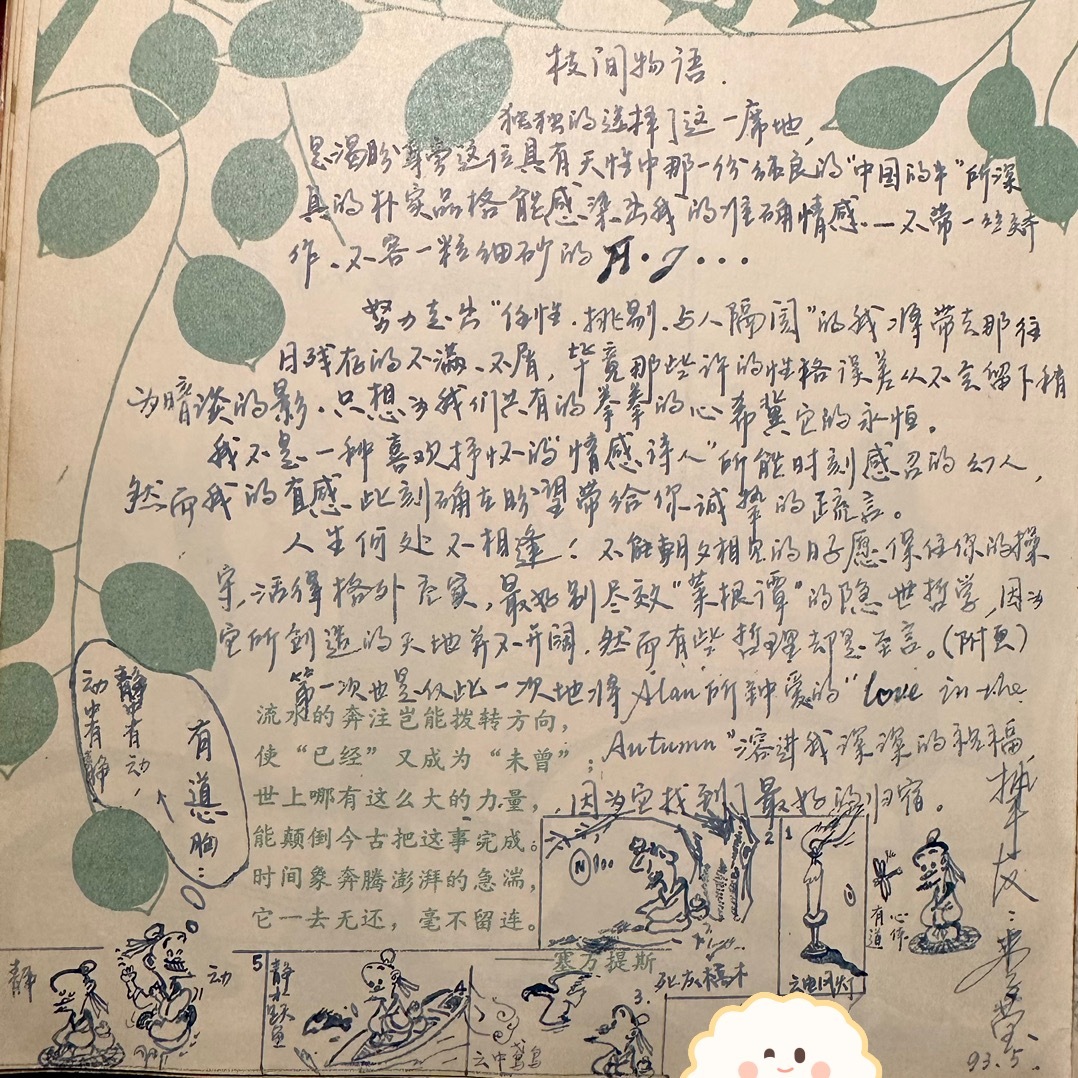 枝间物语.
独独的选择了这一席地,
思渴盼尊旁这位具有天性中那一份纯良的"中国的牛"所深
具的朴实品格能感染出我的准确情感——不带一丝矫
作、不容一粒细砂的 A·J···
努力走出"任性、挑剔、与人隔阂"的我将带去那往
日残存的不满、不屑,毕竟那些许的性格误差从不会留下稍
为暗淡的影.只想为我们共有的拳拳的心希冀它的永恒。
我不是一种喜欢抒怀的"情感诗人"所能时刻感召的幻人,
然而我的直感此刻确在盼望带给你诚挚的疏言。
人生何处不相逢!不能朝夕相见的日子愿保住你的操
守,活得格外充实,最好别尽效"菜根谭"的隐世哲学,因为
它所创造的天地并不开阔.然而有些哲理却是至言。(附页)
第一次也是仅此一次地将Alan所钟爱的"love in the
Autumn"溶进我深深的祝福
因为它找到了最好的归宿。
流水的奔注岂能拨转方向,
使“已经”又成为“未曾”;
世上哪有这么大的力量,
能颠倒今古把这事完成。
时间象奔腾澎湃的急湍,
它一去无还,毫不留连。
塞万提斯
静中有动,
动中有静
有道心胸:
静
动
5
静水跃鱼
4
云中鹤鸟
3.
2
死灰槁木
1
有道
心体
93.5.